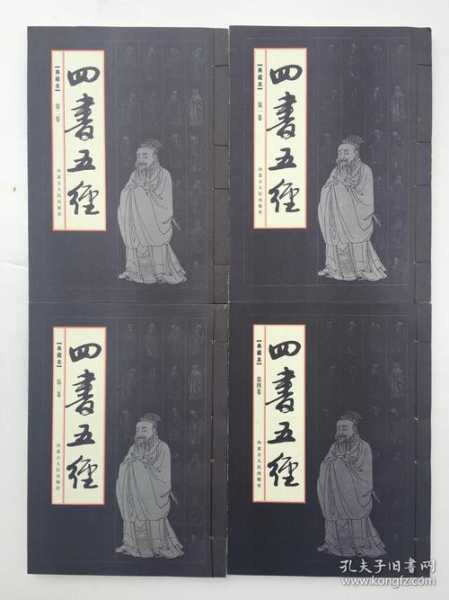 四書五經
【典藏本】
第二卷
内蒙古人民出版社
四書五經
【典藏本】
第一卷
内蒙古人民出版社
四書五經
【典藏本】
第三卷
内蒙古人民出版社
四書五經
【典藏本】
第四卷
内蒙古人民出版社
孔夫子旧书网
www.kongfz.com